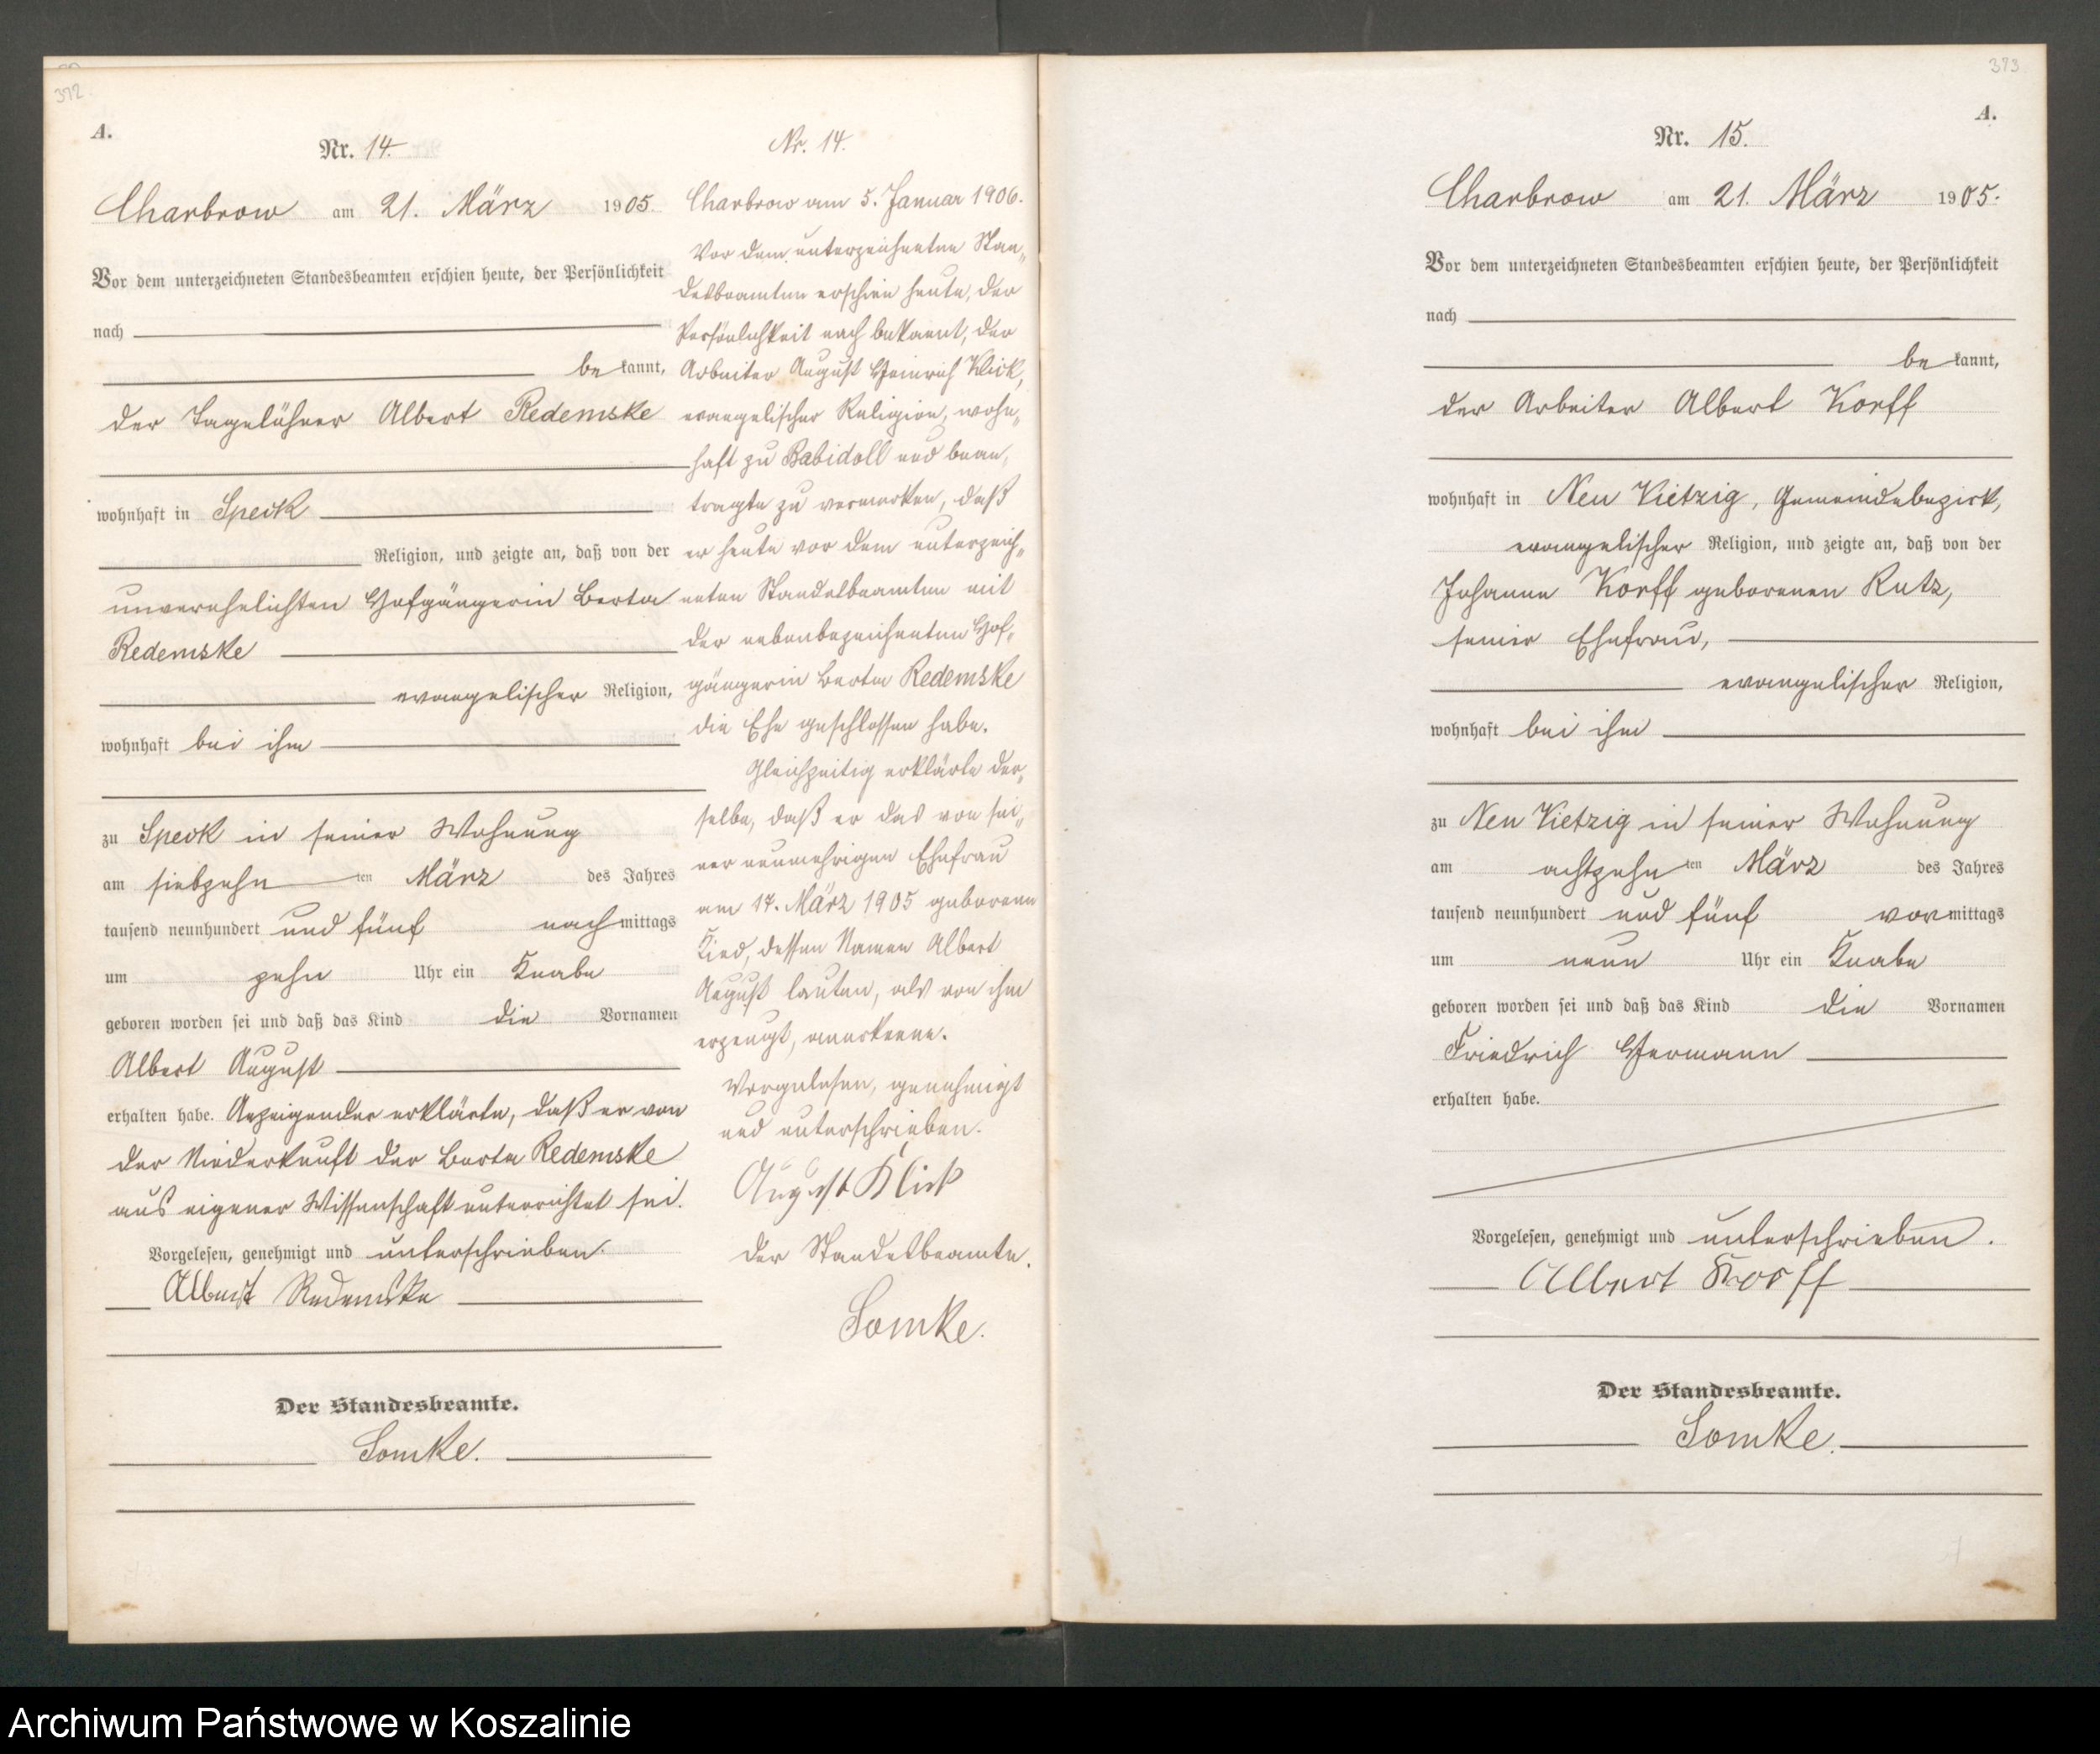 372.
A.
Nr. 14.
Charbrow am 21. März 1905.
Vor dem unterzeichneten Standesbeamten erschien heute, der Persönlichkeit
nach
be kannt,
der Tagelöhner Albert Redemske
wohnhaft in Speck
Religion, und zeigte an, daß von der
unverehelichten Hofgängerin Berta
Redemske
evangelischer Religion,
wohnhaft bei ihm
zu Speck in seiner Wohnung
am siebzehn ten März des Jahres
tausend neunhundert und fünf nach mittags
um zehn Uhr ein Knabe
geboren worden sei und daß das Kind die Vornamen
Albert August
erhalten habe. Anzeigender erklärte, daß er von
der Niederkunft der Berta Redemske
aus eigener Wissenschaft unterrichtet sei.
Vorgelesen, genehmigt und unterschrieben.
Albert Redemske
Der Standesbeamte.
Lomke.
Nr. 14.
Charbrow am 5. Januar 1906.
Vor dem unterzeichneten Stan„
desbeamten erschien heute, der
Persönlichkeit nach bekannt, der
Arbeiter August Heinrich Klick,
evangelischer Religion, wohn„
haft zu Babidoll und bean„
tragte zu vermerken, daß
er heute vor dem unterzeich„
neten Standesbeamten mit
der nebenbezeichneten Hof„
gängerin Berta Redemske
die Ehe geschlossen habe.
Gleichzeitig erklärte der„
selbe, daß er das von sei„
ner nunmehrigen Ehefrau
am 17. März 1905 geborene
Kind, dessen Namen Albert
August lauten, als von ihm
erzeugt, anerkenne.
Vorgelesen, genehmigt
und unterschrieben.
August Klick
Der Standesbeamte.
Lomke.
373
A.
Nr. 15.
Charbrow am 21. März 1905.
Vor dem unterzeichneten Standesbeamten erschien heute, der Persönlichkeit
nach
be kannt,
der Arbeiter Albert Korff
wohnhaft in Neu Vietzig, Gemeindebezirk,
evangelischer Religion, und zeigte an, daß von der
Johanne Korff geborenen Rutz,
seiner Ehefrau,
evangelischer Religion,
wohnhaft bei ihm
zu Neu Vietzig in seiner Wohnung
am achtzehn ten März des Jahres
tausend neunhundert und fünf vor mittags
um neun Uhr ein Knabe
geboren worden sei und daß das Kind die Vornamen
Friedrich Hermann
erhalten habe.
Vorgelesen, genehmigt und unterschrieben.
Albert Korff
Der Standesbeamte.
Lomke.
Archiwum Państwowe w Koszalinie